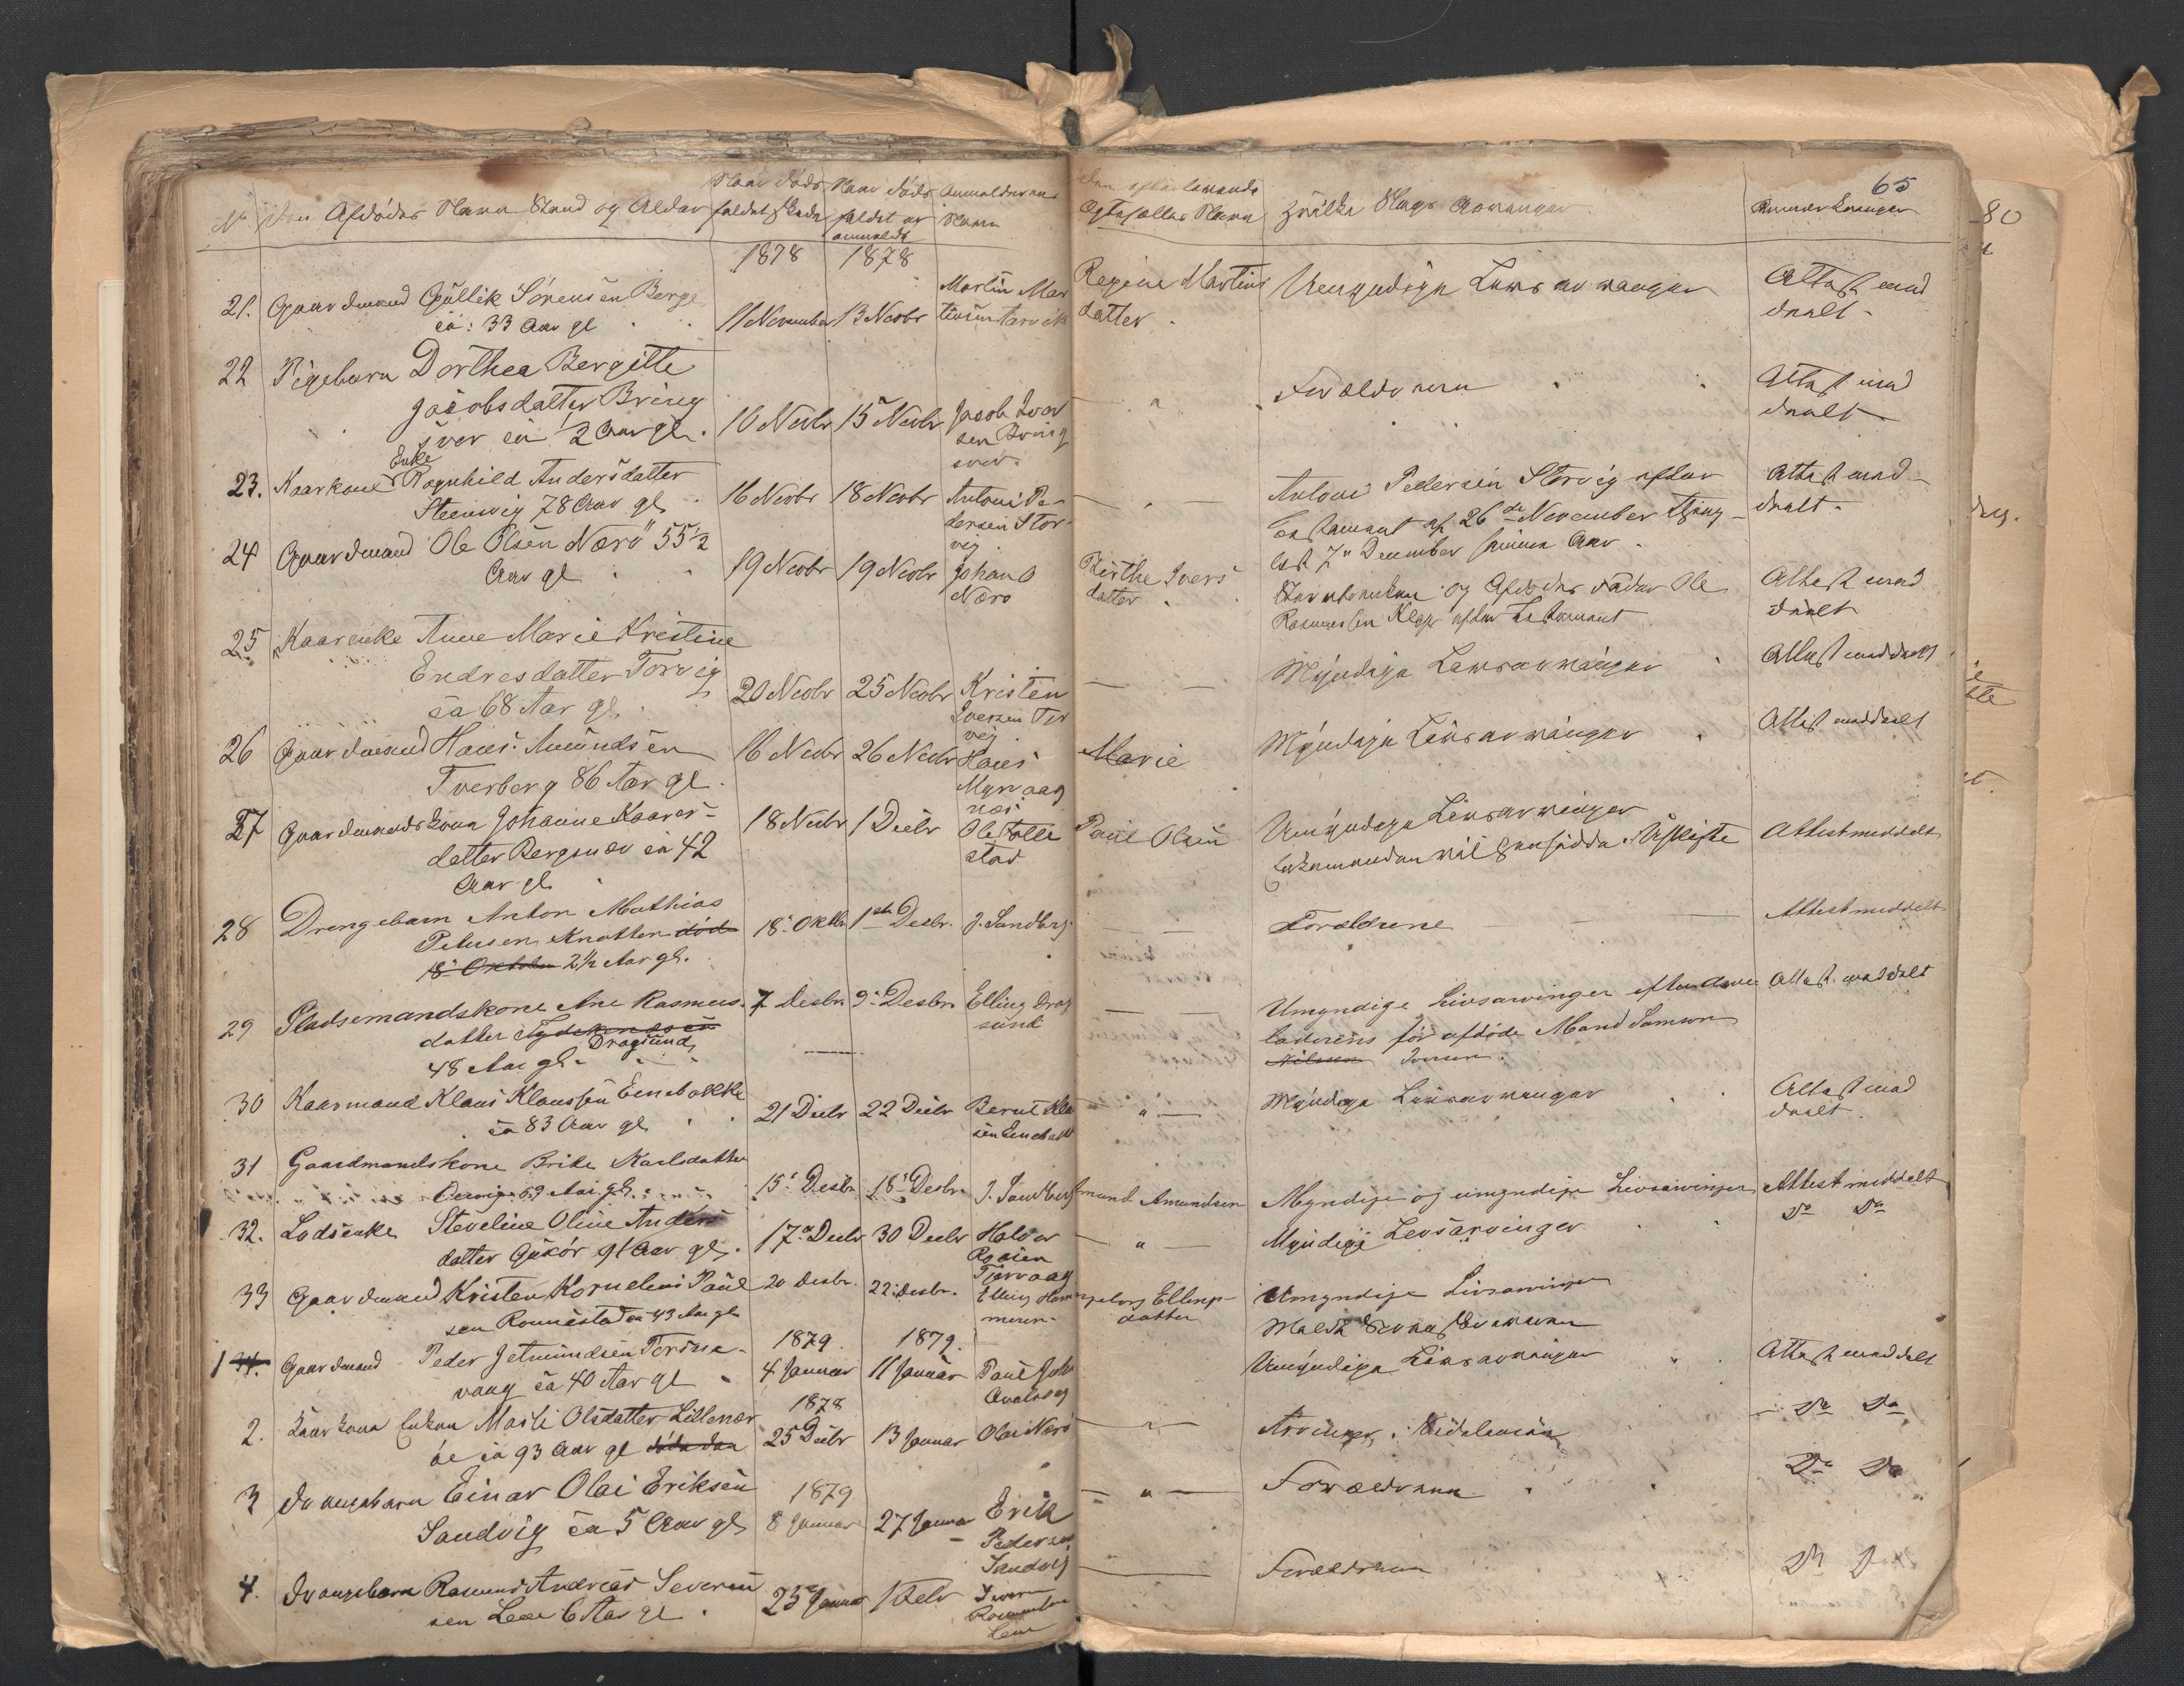 65
No Den Afdødes Navn Stand og Alder
Naar Døds faldet skede
Naar Døds faldet er anmeldt
Anmelderens Navn
Den efterlevende Egtefælles Navn
Hvilke Slags Arvinger
Anmærkninger
1878 1878
21. Gaardmand Gullik Sørensen Berge
ca: 33 Aar gl 11 November 13 Novbr Martin Mar
tinsen Larvik
Regine Martins
datter
Umyndige Livsarvinger
Attest med
deelt
22 Pigebarn Dorthea Bergitte
Jacobsdatter Bring
svor ca 2 Aar gl. 10 Novbr 15 Novbr Jacob Ivar
sen Bring
svor.
Forældrene
Attest med
deelt
23. Kaarkone Enke Ragnhild Andersdatter
Steenvig 78 Aar gl 16 Novbr 18 Novbr Antoni Pe
dersen Stor
vig
Antoni Pedersen Storvig efter
Testament af 26de November thing
læst 7de December samme Aar.
Attest med
deelt.
24 Gaardmand Ole Olsen Nærø 55½
Aar gl 19 Novbr 19 Novbr Johan O
Nærø
Birthe Ivers
datter
og Afdødes Fader Ole
Rasmussen Klop efter Testament
Attest med
deelt
25 Kaarenke Anne Marie Kristine
Endresdatter Torvig
ca 68 Aar gl. 20 Novbr 25 Novbr Kristen
Iversen Tor
vig
Myndige Livsarvinger
Attest meddeelt
26 Gaardmand Hans Amundsen
Tverberg 86 Aar gl. 16 Novbr 26 Novbr Hans
Myrvaag
næs
Marie
Myndige Livsarvinger
Attest meddeelt
27 Gaardmandskone Johanne Kaares
datter Bergsnev ca 42
Aar gl. 18 Novbr 1 Decbr Ole Tolle
stad
Paul Olsen
Umyndige Livsarvinger
Enkemanden vil hensidde i Uskifte
Attest meddelt
28 Drengebarn Anton Mathias
Petersen Knotten død
18 Oktober 2½ Aar gl. 18 Oktbr 1ste Desbr. J. Sandberg
Forældrene
Attest meddelt
29 Pladsemandskone Ane Rasmus
datter
Dragsund
48 Aar gl. 7 Desbr. 9 Desbr. Elling Drag
sund
Umyndige Livsarvinger efter denne
før afdøde Mand Samson
Nilssen Iversen.
Attest meddelt
30 Kaarmand Klaus Klaussen Eenebakke
ca 83 Aar gl 21 Decbr 22 Decbr Bernt Klau
sen Enebakk
Myndige Livsarvinger
Attest med
deelt.
31 Gaardmandskone Brite Karlsdatter
59 Aar gl. 15 Desbr. 18 Desbr. J. Sandberg
Amund Amundsen
Myndige og umyndige Livsarvinger
Attest meddelt
32. Lodsenke Steveline Oline Anders
datter Gjikør 91 Aar gl. 17 Decbr 30 Decbr Halvor
Tjervaag
Myndige Levsarvinger
Do Do
33 Gaardmand Kristen Kornelius Paul
sen Rønnestad ca 43 Aar gl 20 desbr. 22 desbr. Elling Ham
meren
Ellings
datter
Umyndige Livsarvinger
1879. 1879.
1 34. Gaardmand Peder Jetmundsen Torsne
vaag ca 40 Aar gl 4 Januar 11 Januar Paul
Umyndige Livsarvinger
Attest meddelt
1878
2. Kaarkone Enken Masti Olsdatter Lillenær
øe ca 93 Aar gl døde den 25 Decbr 13 Januar Olai Nærø
Arvinger i Sidelinien
Do Do
1879
3 Drengebarn Einar Olai Eriksen
Sandvig ca 5 Aar gl 8 Januar 27 Januar Erik
Pedersen
Sandvig
Forældrene
Do Do
4. Drengebarn Rasmus Andreas Severin
sen Leee 6 Aar gl. 25 Januar 1 Febr
Forældrene
Do Do